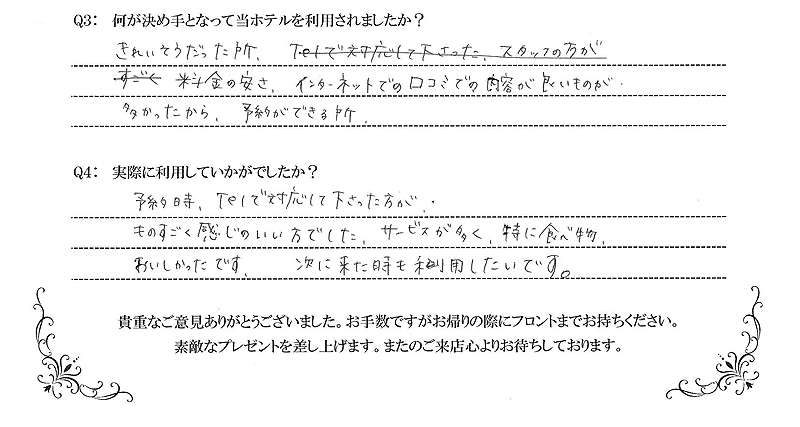 Q3： 何が決め手となって当ホテルを利用されましたか？
きれいそうだった所、 Telで対応して下さった、スタッフの方が
すごく 料金の安さ、インターネットでの口コミでの内容が良いものが
多かったから、 予約ができる所
Q4： 実際に利用していかがでしたか？
予約時、Telで対応して下さった方が、
ものすごく感じのいい方でした、サービスが多く、特に食べ物、
おいしかったです、 次に来た時も利用したいです。
貴重なご意見ありがとうございました。お手数ですがお帰りの際にフロントまでお持ちください。
素敵なプレゼントを差し上げます。またのご来店心よりお待ちしております。